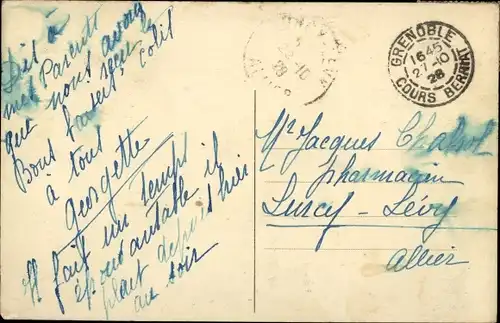 Dis à
mes Parents
que nous avons
reçu le
colis
Bons baisers
à tous
Georgette
Il fait un temps
épouvantable il
pleut depuis hier
au soir
GRENOBLE
1645
27-10
28
COURS BERRIAT
Mr Jacques Chabrol
pharmacien
Lurcy-Lévy
Allier